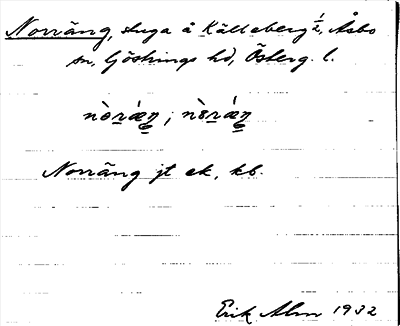 Norräng, stuga å Källeberg ½, Åsbo
sn, Göstrings hd, Österg. l.
nòrä́ŋ; nɷ̀rä́ŋ
Norräng jt ek, kb.
Erik Alm 1932